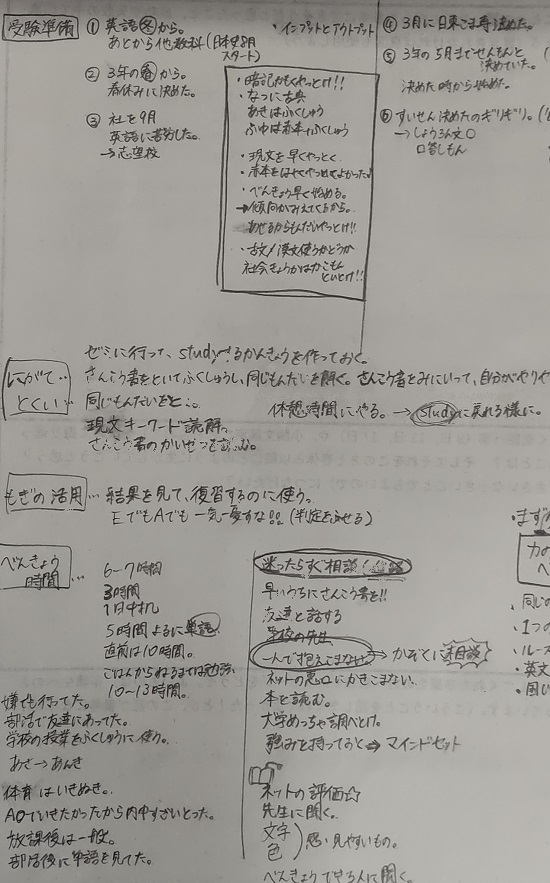 受験準備
① 英語冬から。
あとから他教科(日本史8月
スタート)
② 3年の春から。
春休みに決めた。
③ 社を9月
英語に苦労した。
→志望校
・インプットとアウトプット
・暗記ものやっとけ!!
・なつに古典
あきはふくしゅう
ふゆは赤本+ふくしゅう
・現文を早くやっとく
・赤本をはやくやっておけばよかった。
・べんきょう早く始める。
→傾向がみえてくるから。
あせるからもんだいやっとけ!!
・古文/漢文使うかどうか
社会きょうかはかこもん
といとけ!!
④ 3月に日東こま専決めた。
⑤ 3年の5月までせんもんと
決めていた。
決めた時から始めた。
⑥ すいせん決めたのギリギリ。
→しょうろん文〇
口答しもん
にがて‥
とくい‥
ゼミに行って、studyするかんきょうを作っておく。
さんこう書をといてふくしゅうし、同じもんだいを解く。さんこう書をみにいって、自分がやりや
同じもんだいをと‥。
現文キーワード読解。
さんこう書のかいせつを読む。
休憩時間にやる。→studyに戻れる様に。
もぎの活用… 結果を見て、復習するのに使う。
EでもAでも一気一憂すな!!(判定をふせる)
べんきょう
時間…
6-7時間
3時間
1日中机
5時間 よるに単語
直前は10時間。
ごはんからねるまでは勉強
10-13時間。
嫌でも行ってた。
部活で友達にあってた。
学校の授業をふくしゅうに使う。
あさ→あんき
体育はいきぬき。
AOでいきたかったから内申すごいとった。
放課後は一般。
部活後に単語を見てた。
迷ったらすぐ相談!
早いうちにさんこう書を!!
友達と話する
学校の先生
一人で抱えこまない→かぞくに相談
ネットの悪口にかきこまない
本を読む。
大学めっちゃ調べとけ。
強みを持っておく⇒マインドセット
ネットの評価☆
先生に聞く。
文字
色
)思・見やすいもの。
べんきょうできる人に聞く。
・まず
力の
べ
・同じの
・1つの
・ルーズ
・英文
・同じ